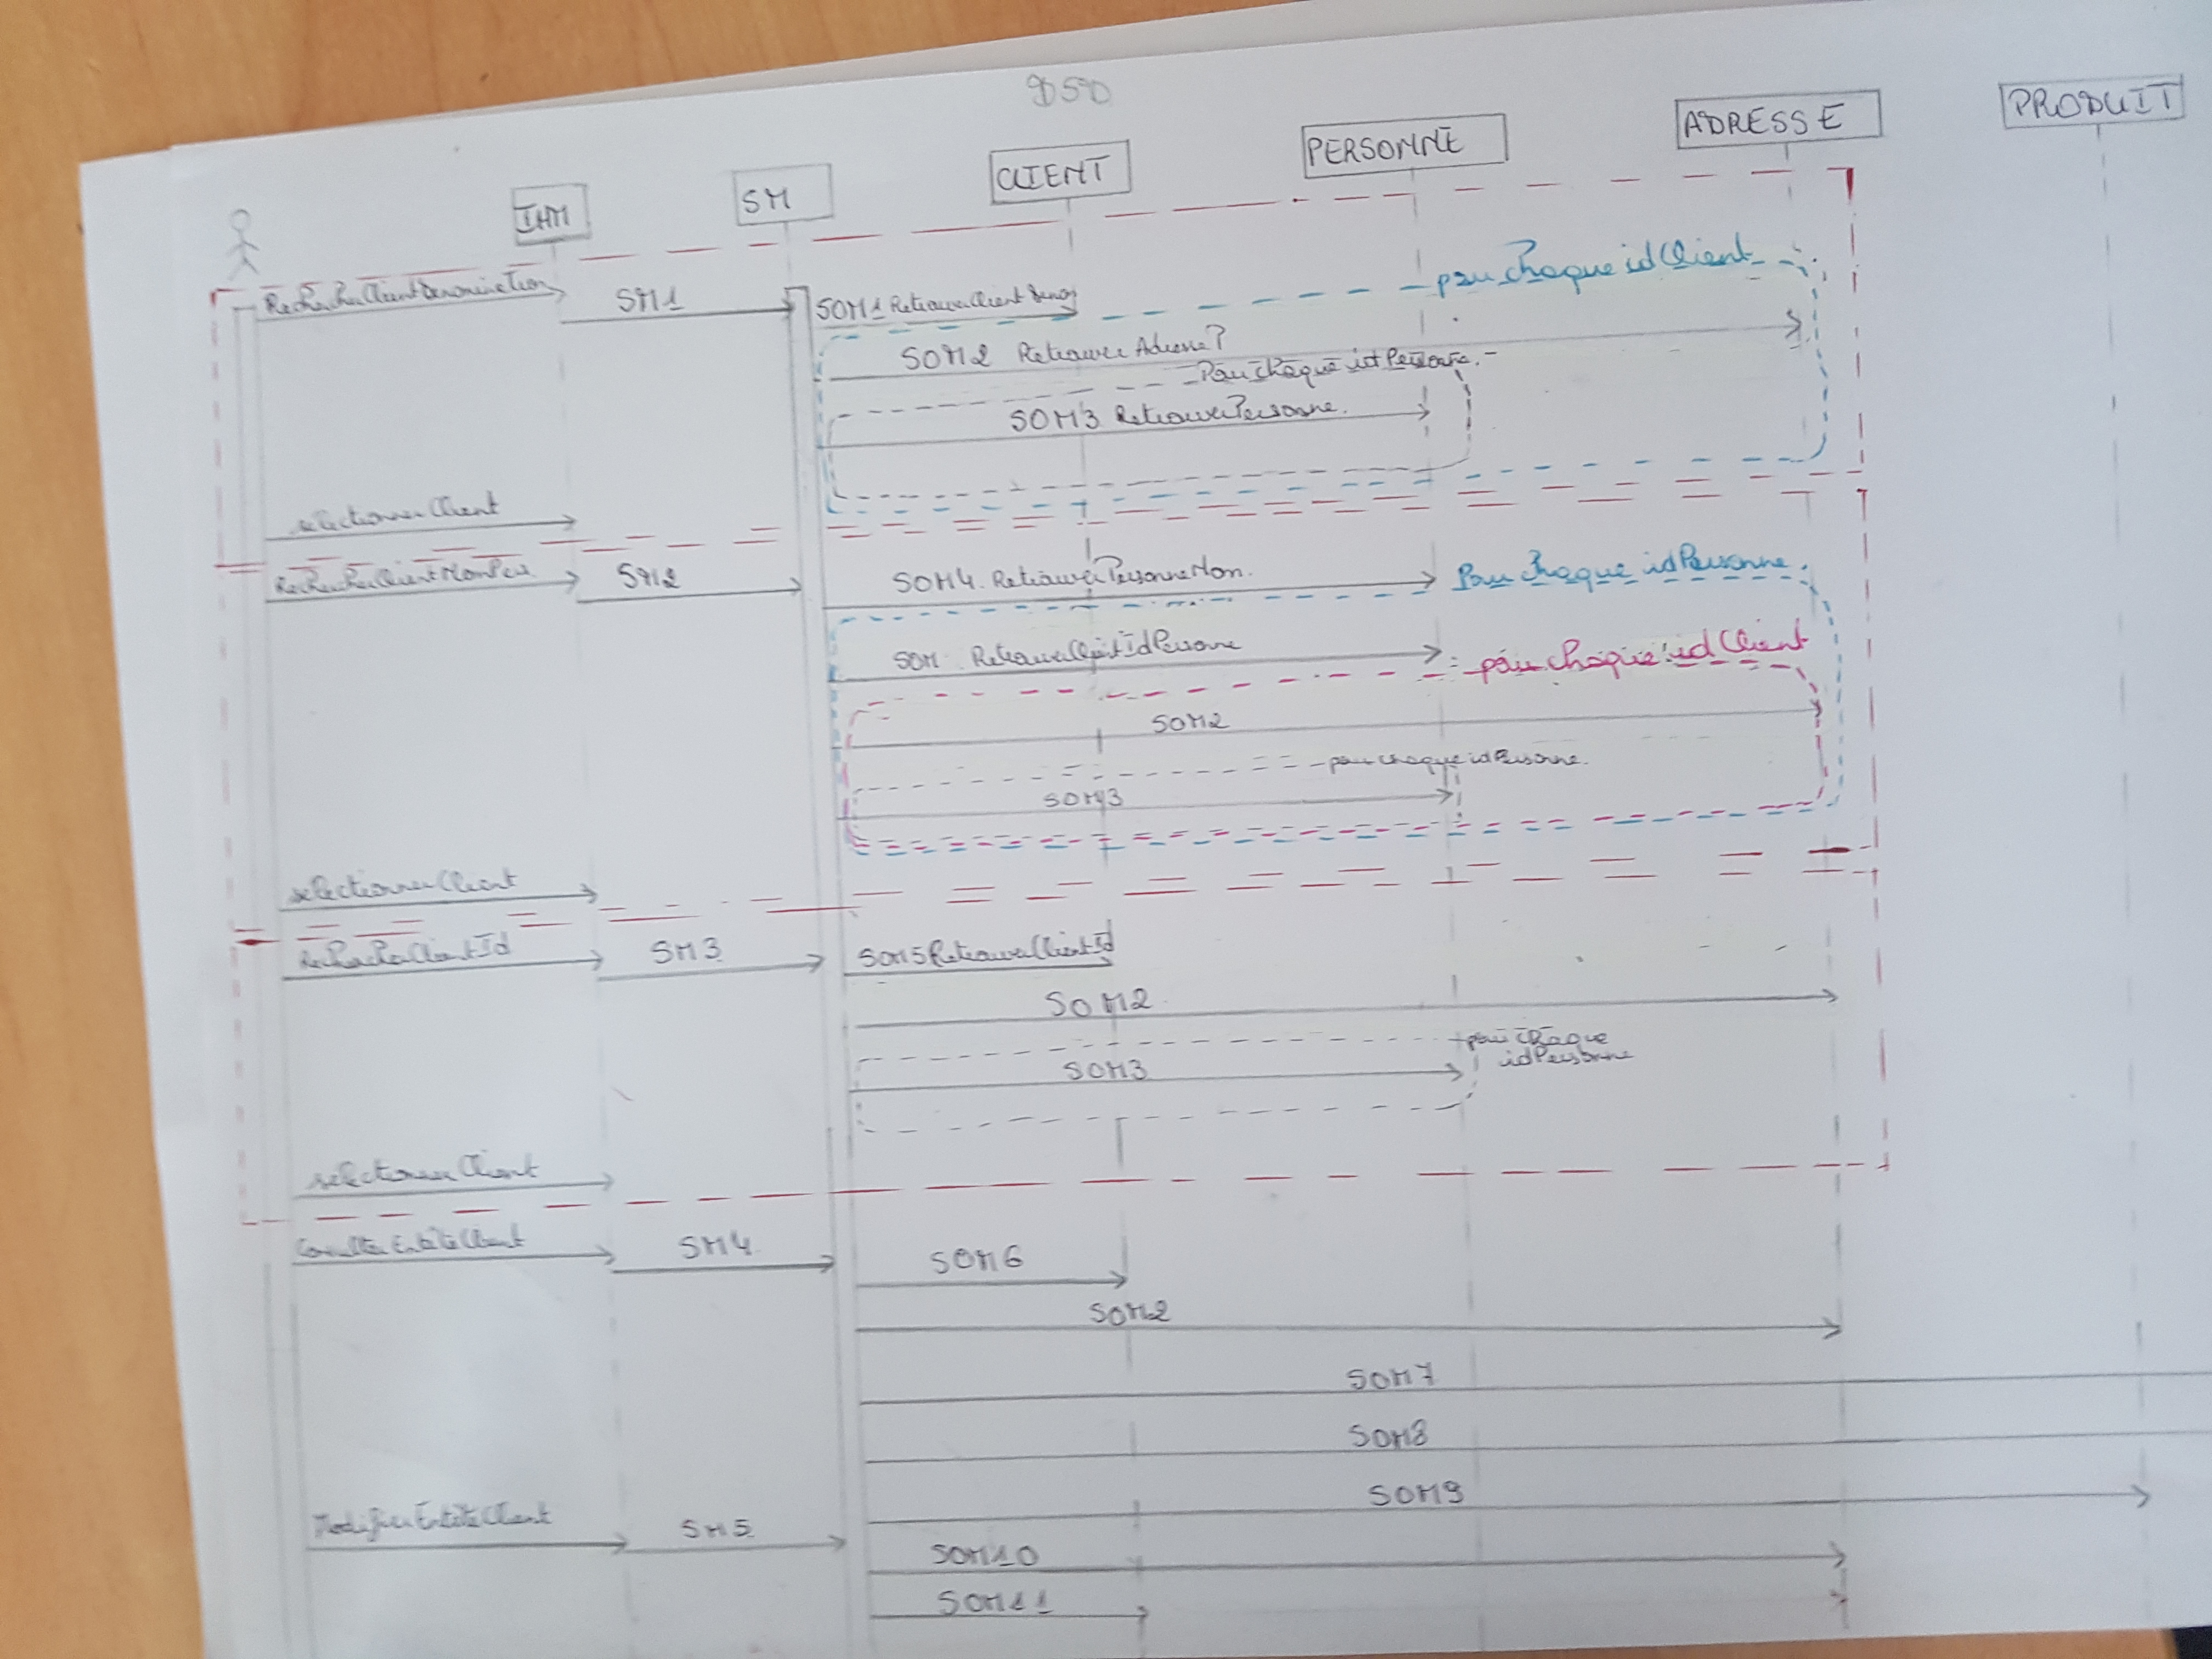 DSND
IHM
SM
CLIENT
PERSONNE
ADRESSE
PRODUIT
RechercherClientDenomination
SM1
SOM1 RetrouverClient Denom
pour chaque idClient
SOM2 Retrouver Adresse?
Pour chaque idPersonne
SOM3 RetrouverPersonne.
selectionnerClient
RechercherClientNomPer
SM2
SOM4. RetrouverPersonneNom.
Pour chaque idPersonne.
SOM. RetrouverClientidPersonne
pour chaque idClient
SOM2
pour chaque idPersonne.
SOM3
selectionnerClient
RechercherClientId
SM3
SOM5RetrouverClientId
SOM2.
pour chaque
idPersonne
SOM3
selectionnerClient
ConsulterEntitéClient
SM4.
SOM6
SOM2
SOM7
SOM8
SOM9
ModifierEntitéClient
SM5.
SOM10
SOM11